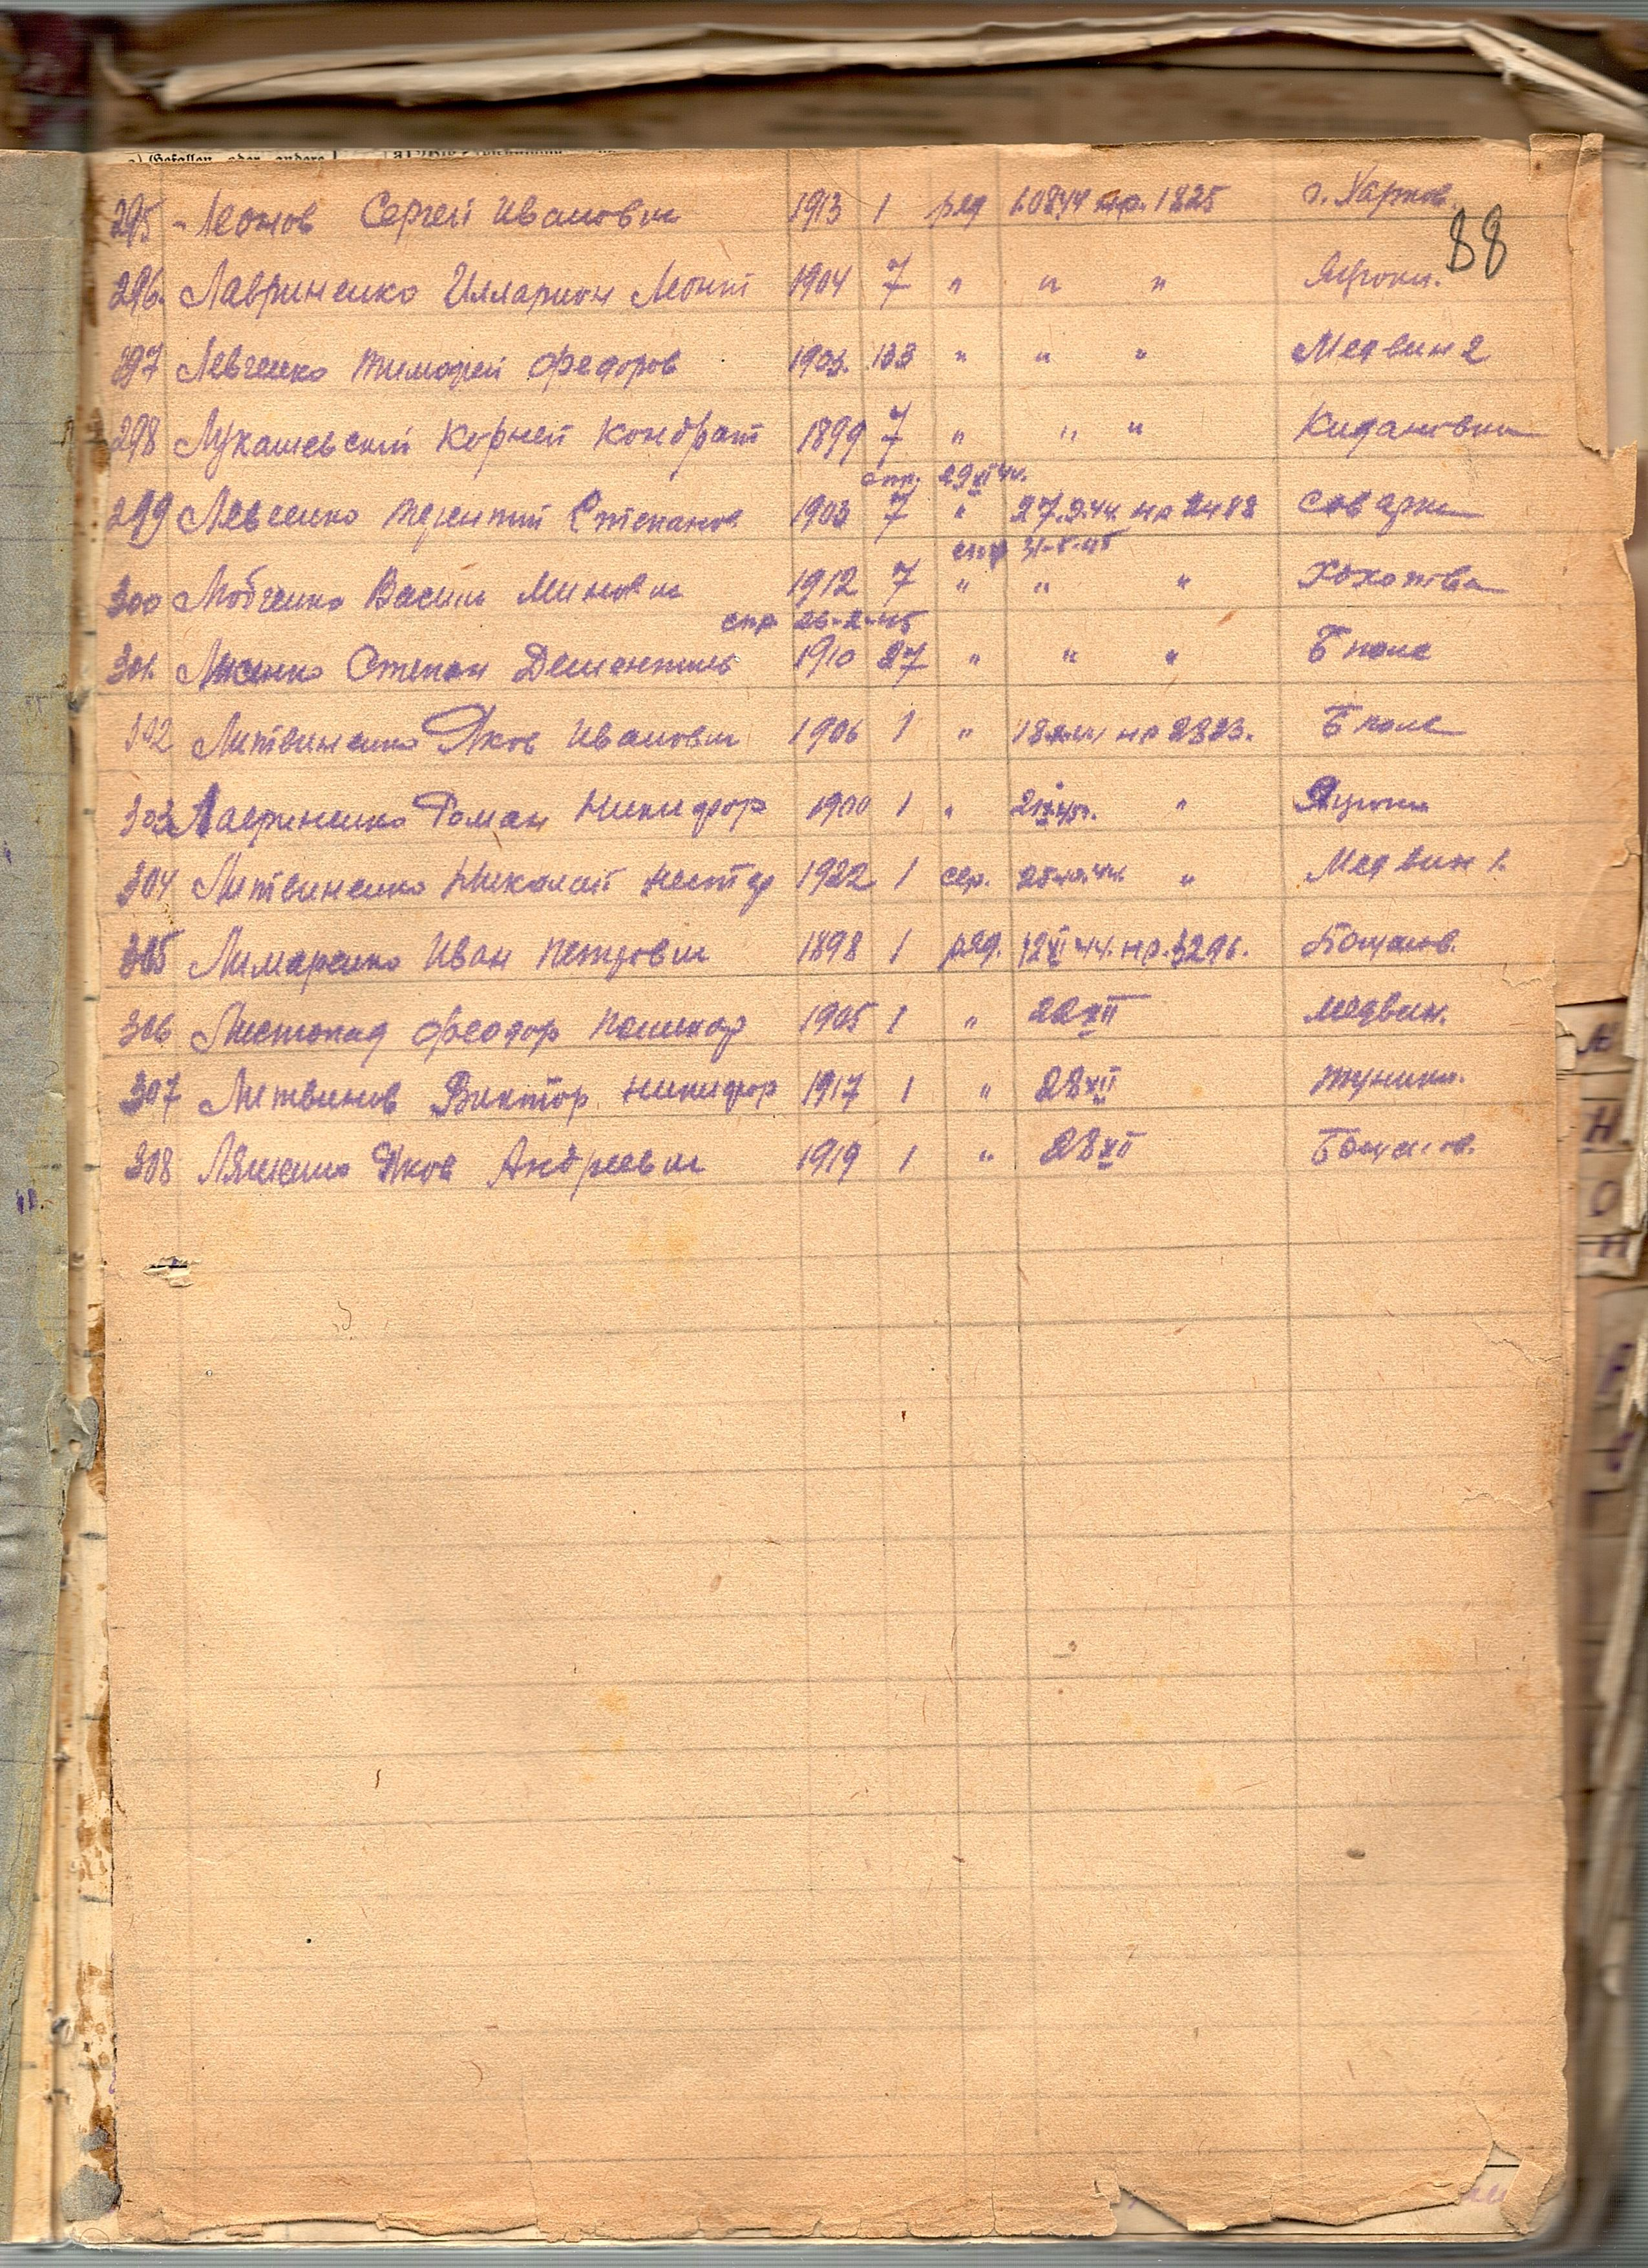 295 - Леонов Сергей Иванович 1913 1 ряд 1.08.44 нр. 1825 г. Харков.
88
296. Лавриненко Илларион Леонт 1904 7 " " " Яцюки.
297 Левченко Тимофей Федоров 1903. 133 " " " Медвин 2
298 Лукашевский Корней Кондрат 1899 7 " " " Кидановка
спр. 29 XI 44.
299 Левченко Терентий Степанов 1903 7 " 27.9.44 нр 2488 Соварка
спр 31-5-45
300 Любченко Васили Минович 1912 7 " " " Хохотва
спр 26-2-45
301. Лисенко Степан Дементиев 1910 27 " " " Б поле
302 Литвиненко Яков Иванович 1906 1 " нр 2823. Б поле
303 Лавриненко Роман Никифор 1900 1 " " Яцюки
304 Литвиненко Николай Нестер 1922 1 сер. " Медвин 1.
305 Лимаренко Иван Петрович 1898 1 ряд. 12 XI 44. нр. 3296. Башков.
306 Листопад Феодор Никифор 1905 1 " 22 XII Медвин.
307 Литвинов Виктор Никифор 1917 1 " 28 XII
308 Ляшенко Яков Андреевич 1919 1 " 28 XII